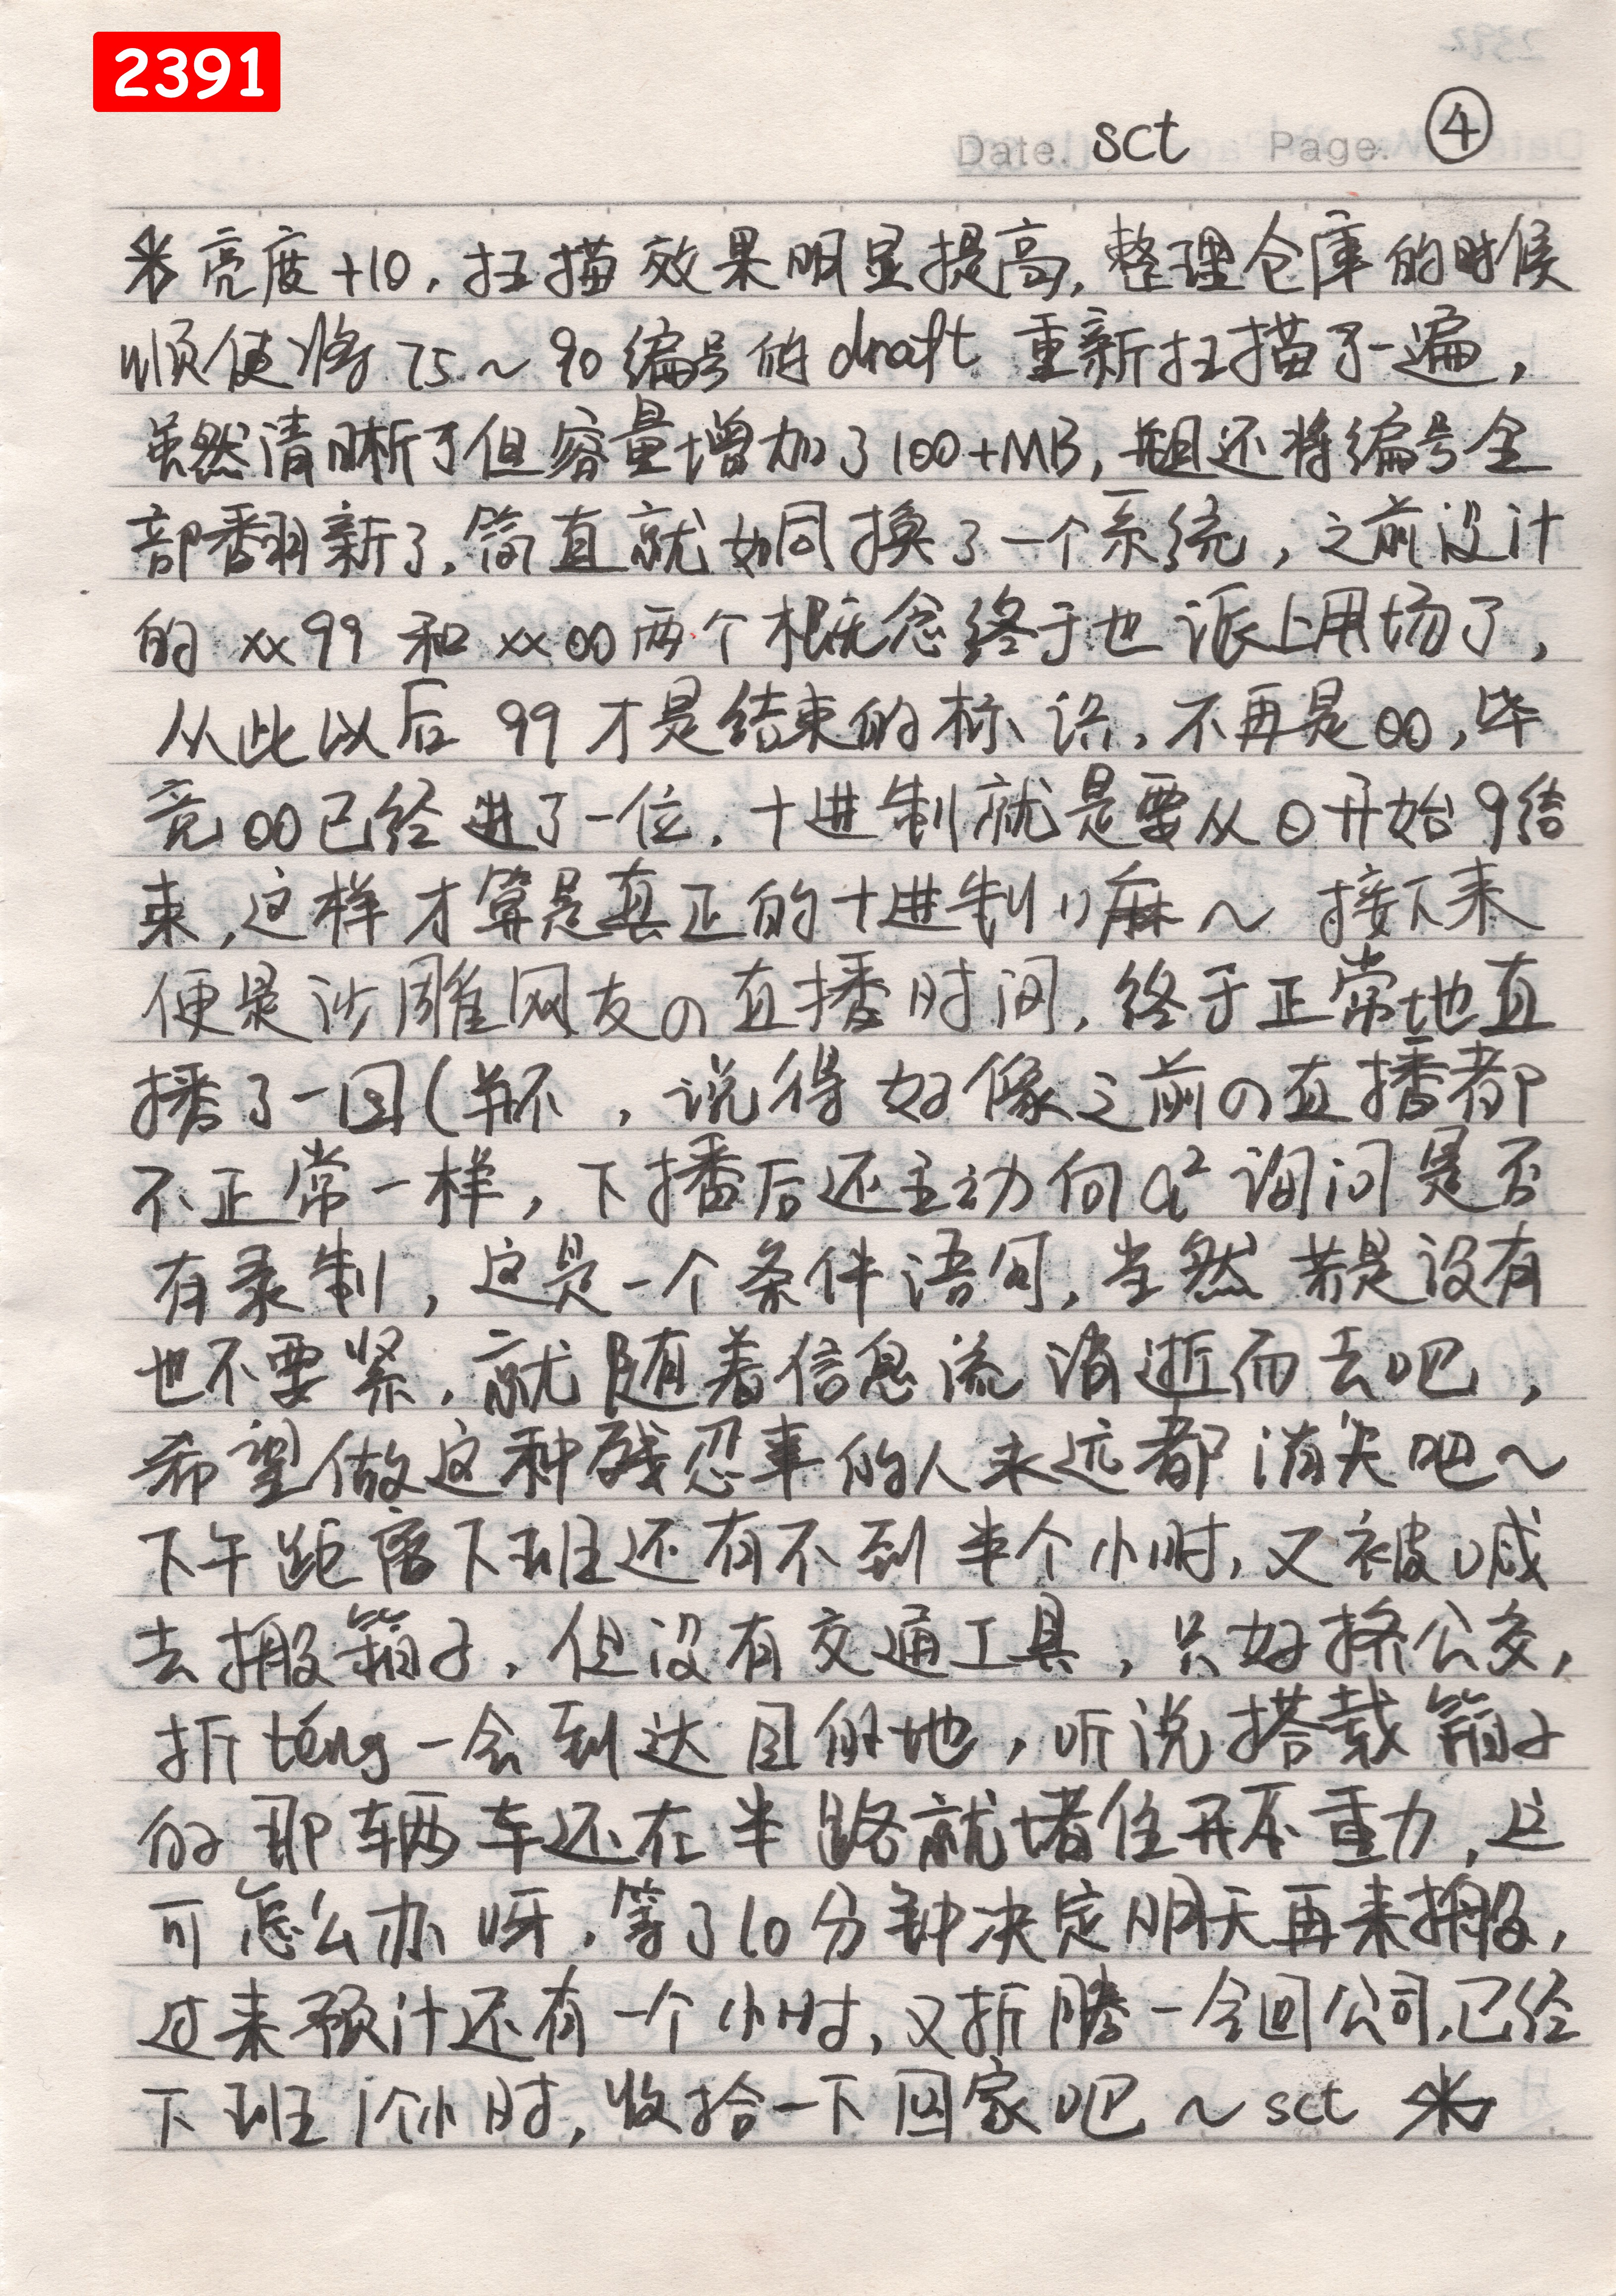 2391
Date. sct Page. ④
米亮度+10，扫描效果明显提高，整理仓库的时候
顺便将75~90编号的draft重新扫描了一遍，
虽然清晰了但容量增加了100+MB，并且还将编号全
部翻新了，简直就如同换了一个系统，之前设计
的xx99和xx00两个概念终于也派上用场了，
从此以后99才是结束的标识，不再是00，毕
竟00已经进了一位，十进制就是要从0开始9结
束，这样才算是真正的十进制嘛～接下来
便是沙雕网友の直播时间，终于正常地直
播了一回（并不，说得好像之前の直播都
不正常一样，下播后还主动向a²询问是否
有录制，这是一个条件语句，当然若是没有
也不要紧，就随着信息流消逝而去吧，
希望做这种残忍事的人永远都消失吧～
下午距离下班还有不到半个小时，又被喊
去搬箱子，但没有交通工具，只好挤公交，
折téng一会到达目的地，听说搭载箱子
的那辆车还在半路就堵住开不动，这
可怎么办呀，等了10分钟决定明天再来搬，
过来预计还有一个小时，又折腾一会回公司，已经
下班1个小时，收拾一下回家吧～sct 米